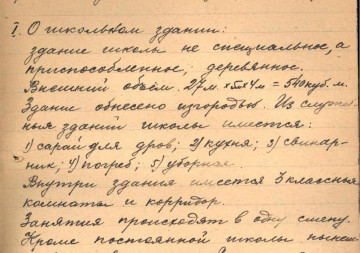 I. О школьном здании:
здание школы не специальное, а
приспособленное, деревянное.
Внешний объём. 27м. х5х4м = 540куб. м.
Здание обнесено изгородью. Из служеб-
ных зданий школы имеется:
1) сарай для дров; 2) кухня; 3) свинар-
ник; 4) погреб; 5) уборная.
Внутри здания имеется 3 классных
комнаты и корридор.
Занятия происходят в одну смену.
Кроме постоянной школы